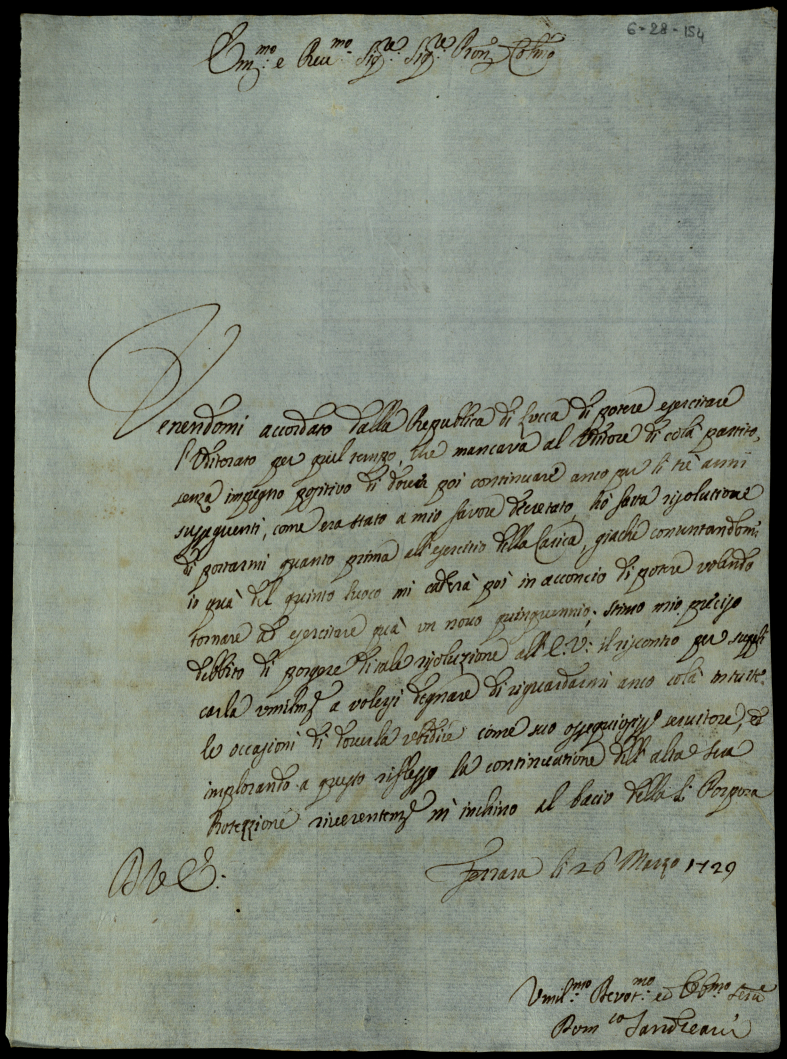 6-28-154
Em.mo e Reu.mo Sig.re Sig.re Pron.e Col.mo
Venendomi accordato dalla Republica di Lucca di potere esercitare
l'Uditorato per quel tempo, che mancava al Uditore di colà partito,
senza impegno positivo di dover poi continuare anco per li trè anni
susseguenti, come era stato a mio favore decretato, hò fatta risolutione
di portarmi quanto prima all'esercitio della Carica, giachè contentandomi
io quà del quinto luoco mi caderà poi in acconcio di potere volendo
tornare ad esercitare quà un novo quinquennio; stimo mio preciso
debbito di porgere di tale risoluzione all'E.V: il riscontro per suppli
carla umilm.e a volersi degnare di riguardarmi anco colà in tutte
le occasioni di doverla ubidire come suo ossequiosiss.o servitore, ed
implorando a questo riflesso la continuatione dell'alta sua
Protezzione riverentem.e m'inchino al bacio della S. Porpora
D V E:
Ferrara li 26 Marzo 1729
Umil.mo Devot.mo ed Obb.mo Ser.e
Dom.co